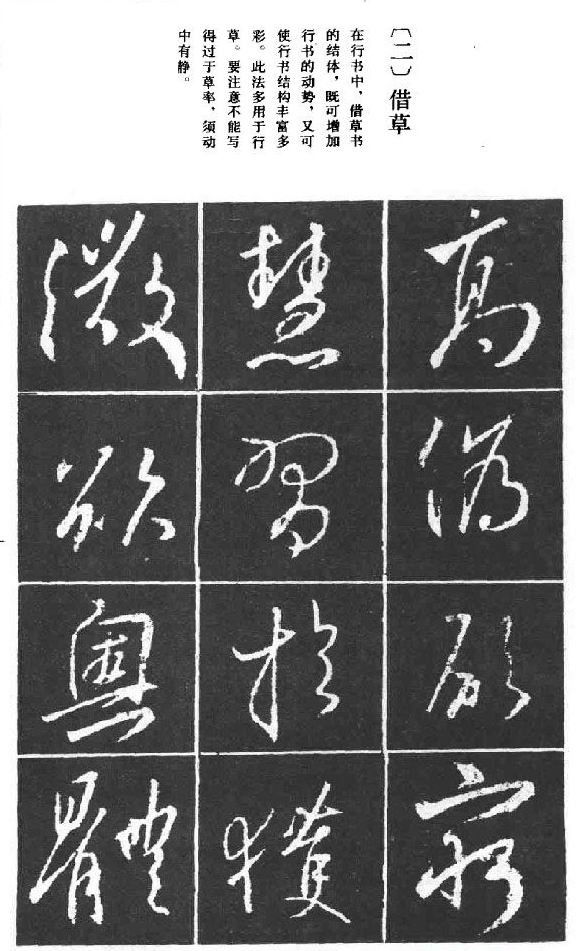 〔二〕借草
在行书中，借草书
的结体，既可增加
行书的动势，又可
使行书结构丰富多
彩。此法多用于行
草。要注意不能写
得过于草率，须动
中有静。
高
偽
欣
窮
慧
習
於
獲
微
欲
奧
體